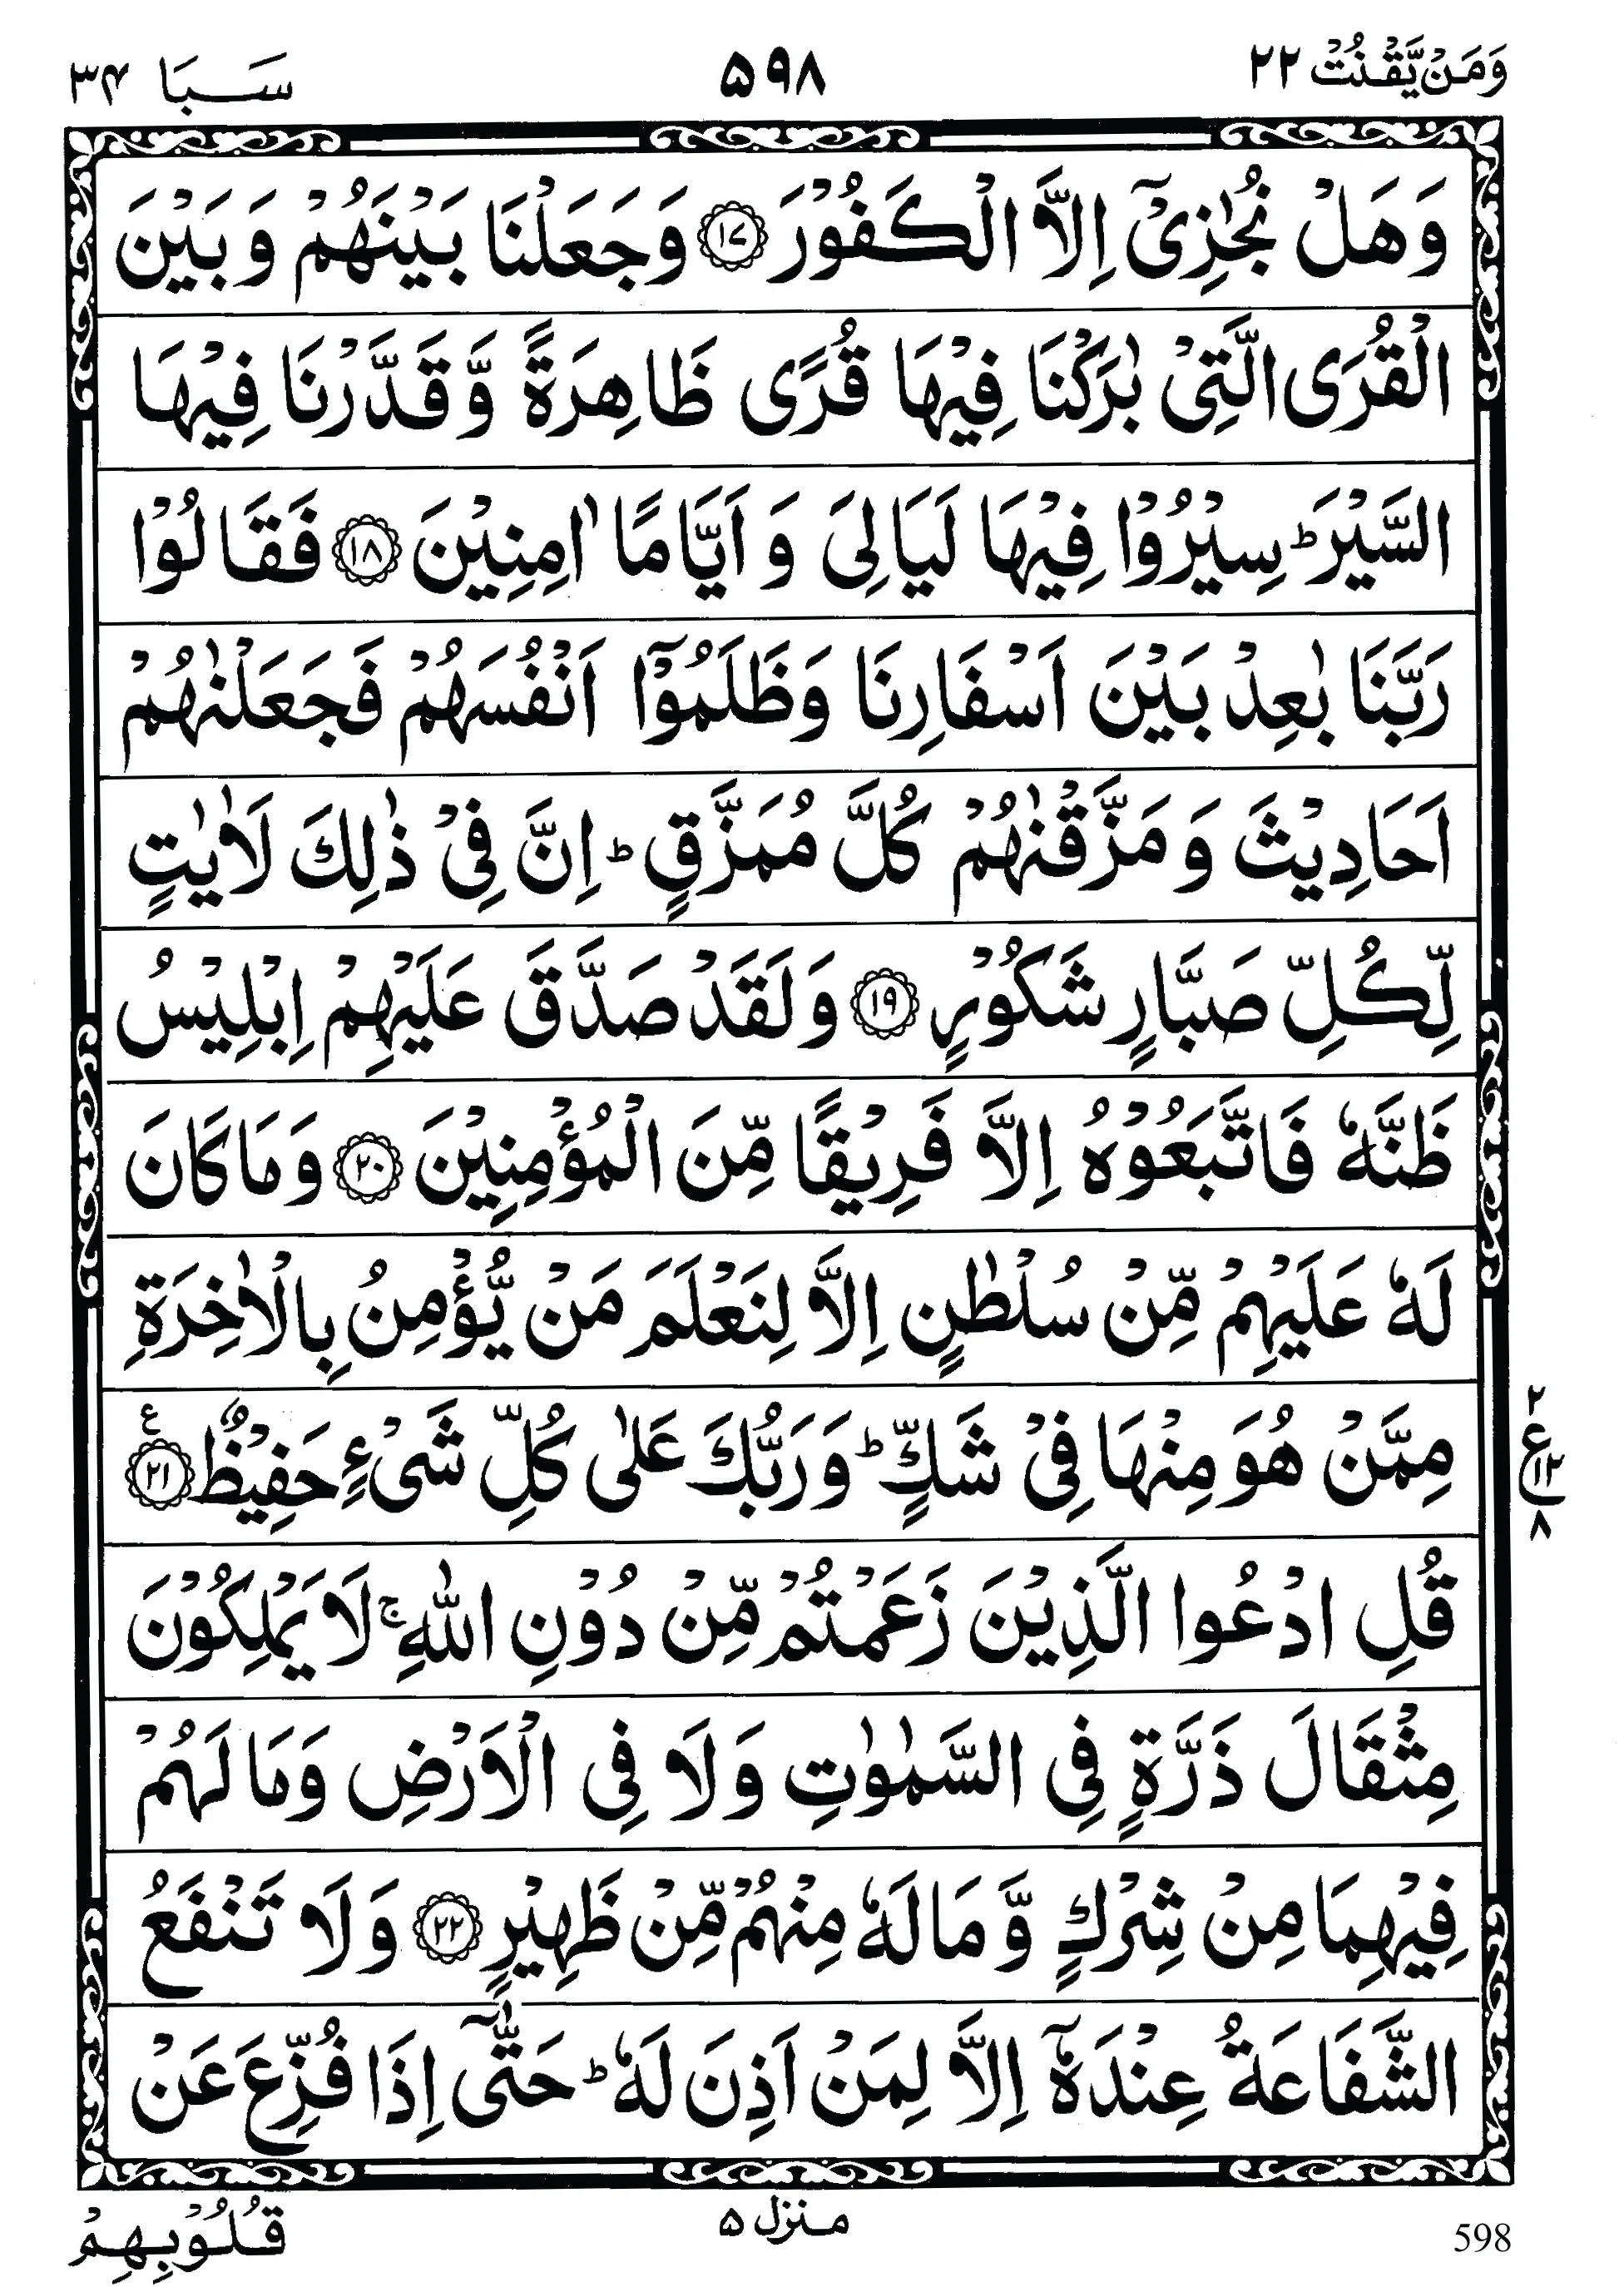 وَمَنْ يَّقْنُتْ ٢٢ ۵۹۸ سَبَا ۳۴
وَهَلْ نُجٰزِیْۤ اِلَّا الْكَفُوْرَ ١٧ وَجَعَلْنَا بَیْنَهُمْ وَبَیْنَ
الْقُرَی الَّتِیْ بٰرَكْنَا فِیْهَا قُرًی ظَاهِرَةً وَّقَدَّرْنَا فِیْهَا
السَّیْرَ ؕ سِیْرُوْا فِیْهَا لَیَالِیَ وَاَیَّامًا اٰمِنِیْنَ ١٨ فَقَالُوْا
رَبَّنَا بٰعِدْ بَیْنَ اَسْفَارِنَا وَظَلَمُوْۤا اَنْفُسَهُمْ فَجَعَلْنٰهُمْ
اَحَادِیْثَ وَمَزَّقْنٰهُمْ كُلَّ مُمَزَّقٍ ؕ اِنَّ فِیْ ذٰلِكَ لَاٰیٰتٍ
لِّكُلِّ صَبَّارٍ شَكُوْرٍ ١٩ وَلَقَدْ صَدَّقَ عَلَیْهِمْ اِبْلِیْسُ
ظَنَّهٗ فَاتَّبَعُوْهُ اِلَّا فَرِیْقًا مِّنَ الْمُؤْمِنِیْنَ ٢٠ وَمَا كَانَ
لَهٗ عَلَیْهِمْ مِّنْ سُلْطٰنٍ اِلَّا لِنَعْلَمَ مَنْ یُّؤْمِنُ بِالْاٰخِرَةِ
مِمَّنْ هُوَ مِنْهَا فِیْ شَكٍّ ؕ وَرَبُّكَ عَلٰی كُلِّ شَیْءٍ حَفِیْظٌ ٢١ ع
٢
ع ١٢
٨
قُلِ ادْعُوا الَّذِیْنَ زَعَمْتُمْ مِّنْ دُوْنِ اللّٰهِ ۚ لَا یَمْلِكُوْنَ
مِثْقَالَ ذَرَّةٍ فِی السَّمٰوٰتِ وَلَا فِی الْاَرْضِ وَمَا لَهُمْ
فِیْهِمَا مِنْ شِرْكٍ وَّمَا لَهٗ مِنْهُمْ مِّنْ ظَهِیْرٍ ٢٢ وَلَا تَنْفَعُ
الشَّفَاعَةُ عِنْدَهٗۤ اِلَّا لِمَنْ اَذِنَ لَهٗ ؕ حَتّٰۤی اِذَا فُزِّعَ عَنْ
قُلُوْبِهِمْ
منزل ۵
598